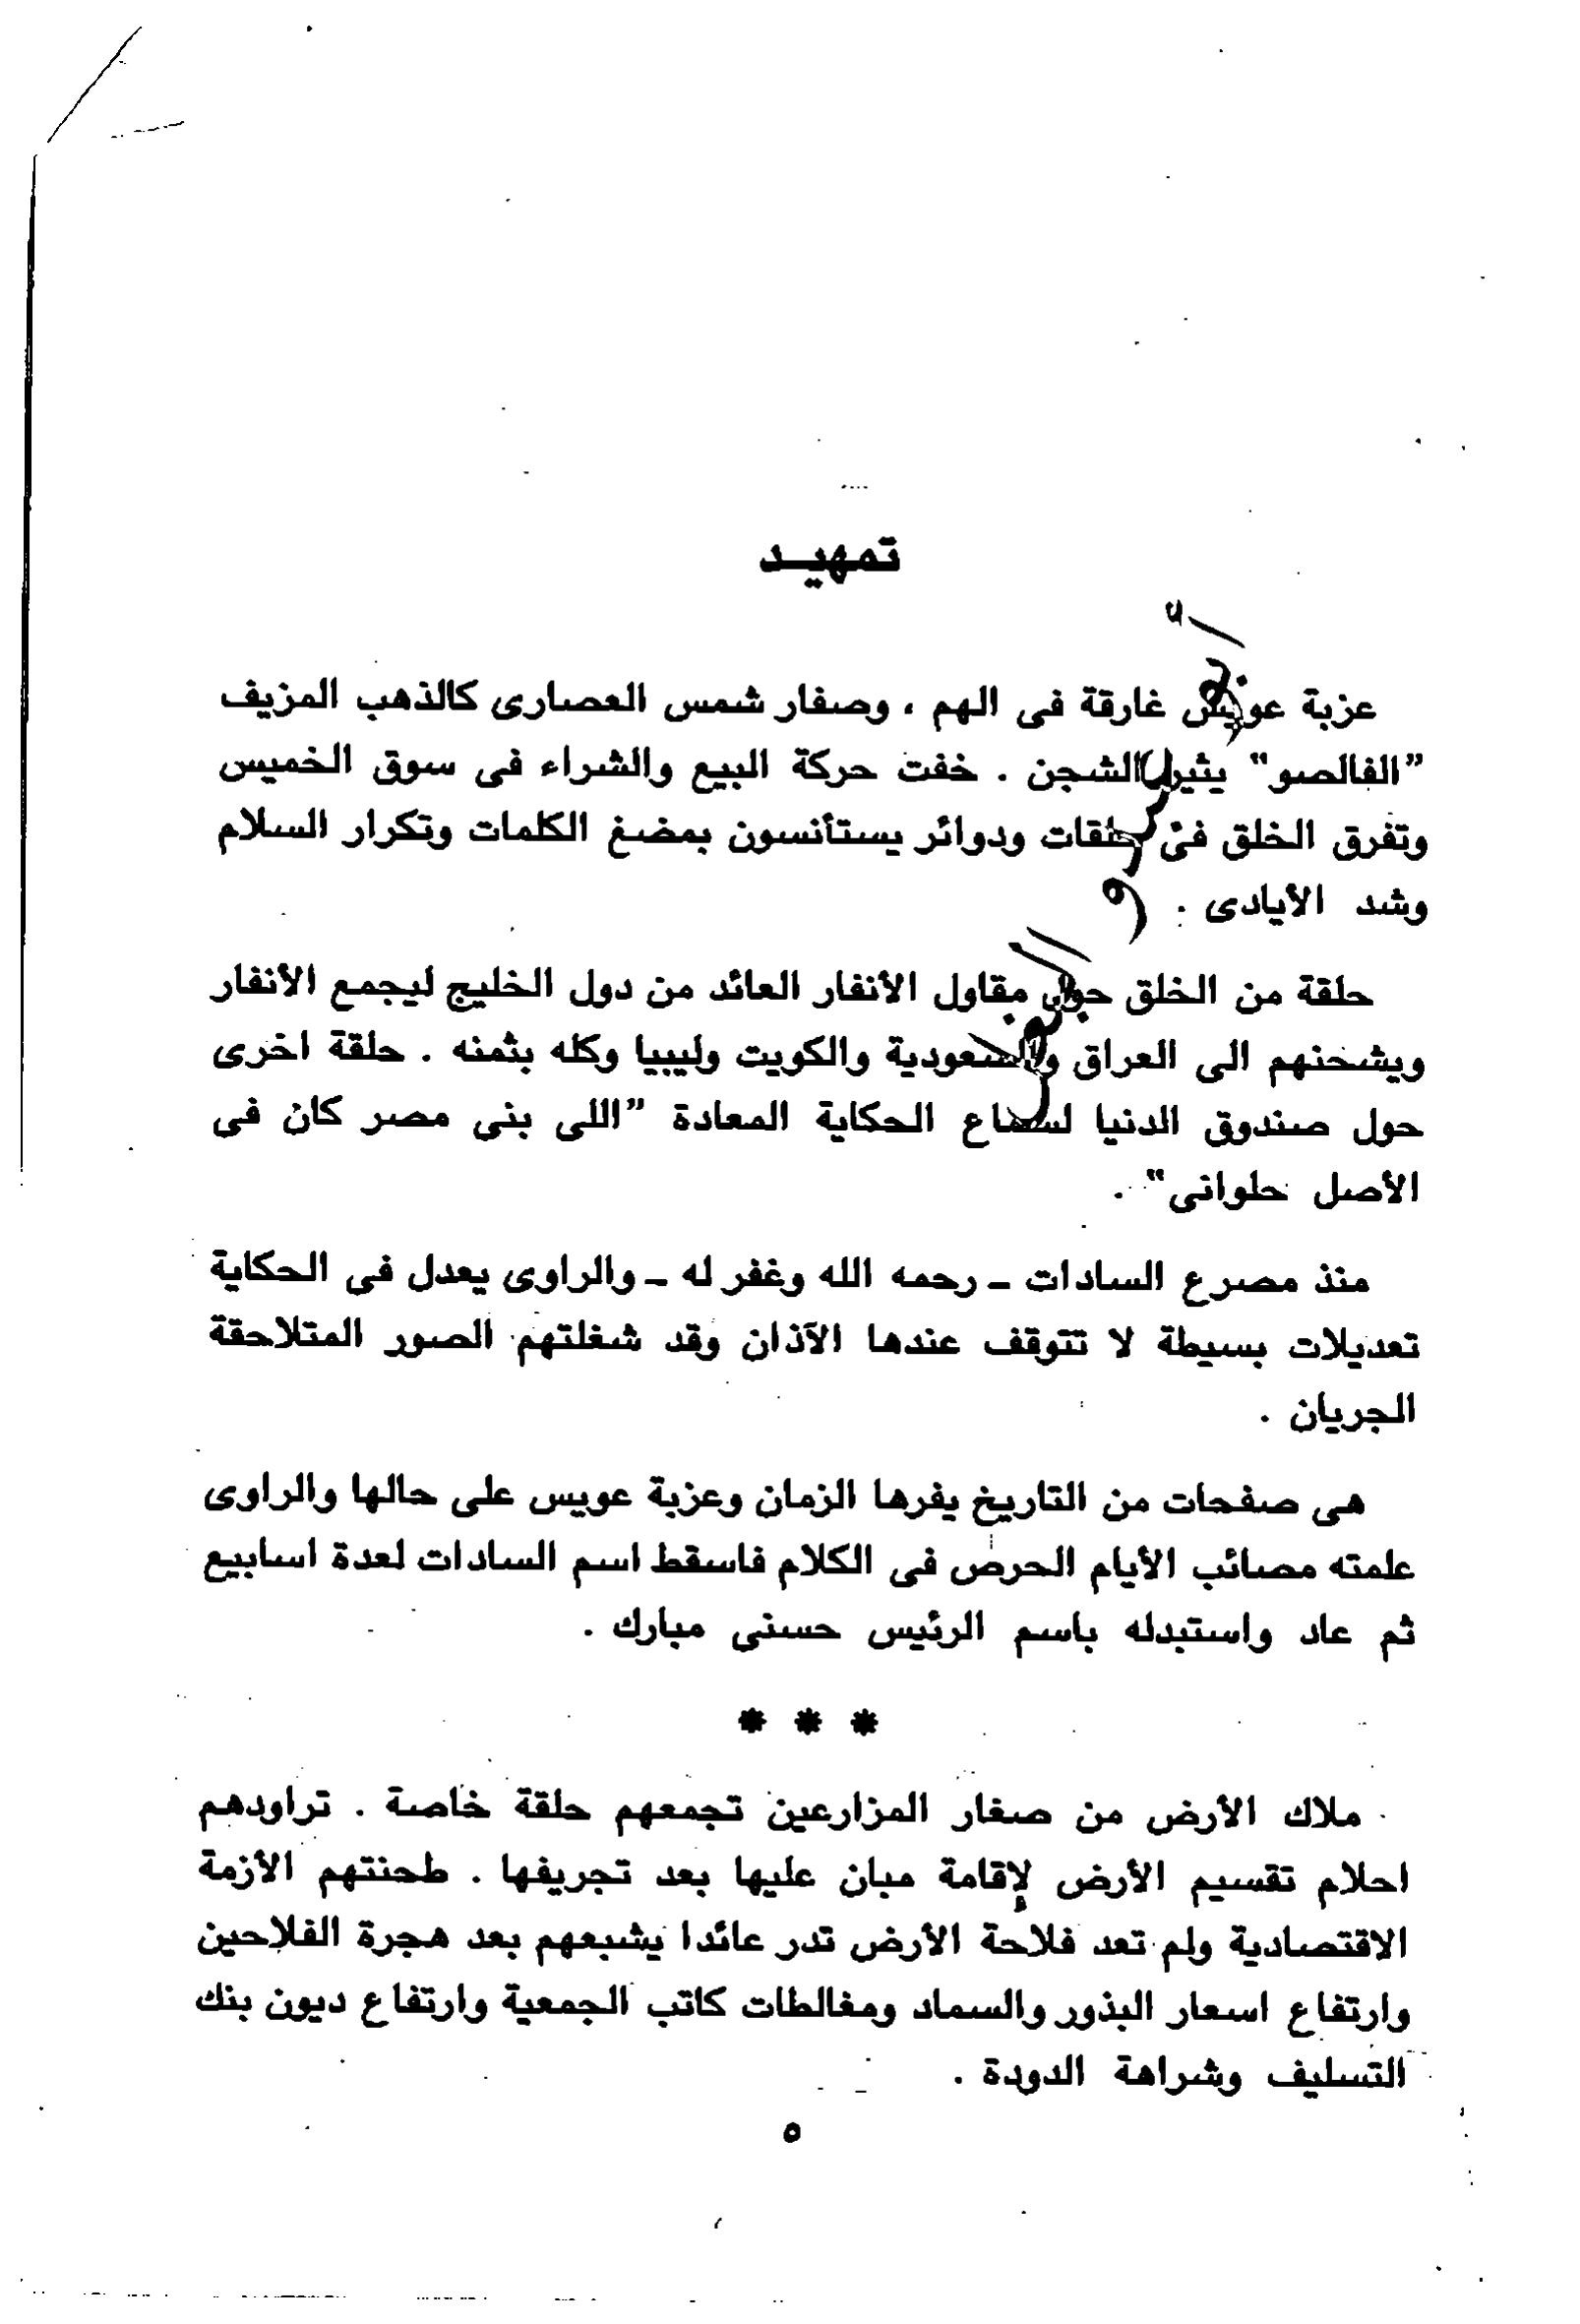 تمهيد
عزبة عويس غارقة فى الهم ، وصفار شمس العصارى كالذهب المزيف
"الفالصو" يثير الشجن . خفت حركة البيع والشراء فى سوق الخميس
وتفرق الخلق فى حلقات ودوائر يستأنسون بمضغ الكلمات وتكرار السلام
وشد الأيادى .
حلقة من الخلق حول مقاول الأنفار العائد من دول الخليج ليجمع الأنفار
ويشحنهم الى العراق والسعودية والكويت وليبيا وكله بثمنه . حلقة اخرى
حول صندوق الدنيا لسماع الحكاية المعادة "اللى بنى مصر كان فى
الأصل حلوانى" .
منذ مصرع السادات ـ رحمه الله وغفر له ـ والراوى يعدل فى الحكاية
تعديلات بسيطة لا تتوقف عندها الآذان وقد شغلتهم الصور المتلاحقة
الجريان .
هى صفحات من التاريخ يفرها الزمان وعزبة عويس على حالها والراوى
علمته مصائب الأيام الحرص فى الكلام فاسقط اسم السادات لعدة اسابيع
ثم عاد واستبدله باسم الرئيس حسنى مبارك .
* * *
ملاك الأرض من صغار المزارعين تجمعهم حلقة خاصة . تراودهم
احلام تقسيم الأرض لإقامة مبان عليها بعد تجريفها . طحنتهم الأزمة
الاقتصادية ولم تعد فلاحة الأرض تدر عائدا يشبعهم بعد هجرة الفلاحين
وارتفاع اسعار البذور والسماد ومغالطات كاتب الجمعية وارتفاع ديون بنك
التسليف وشراهة الدودة .
٥